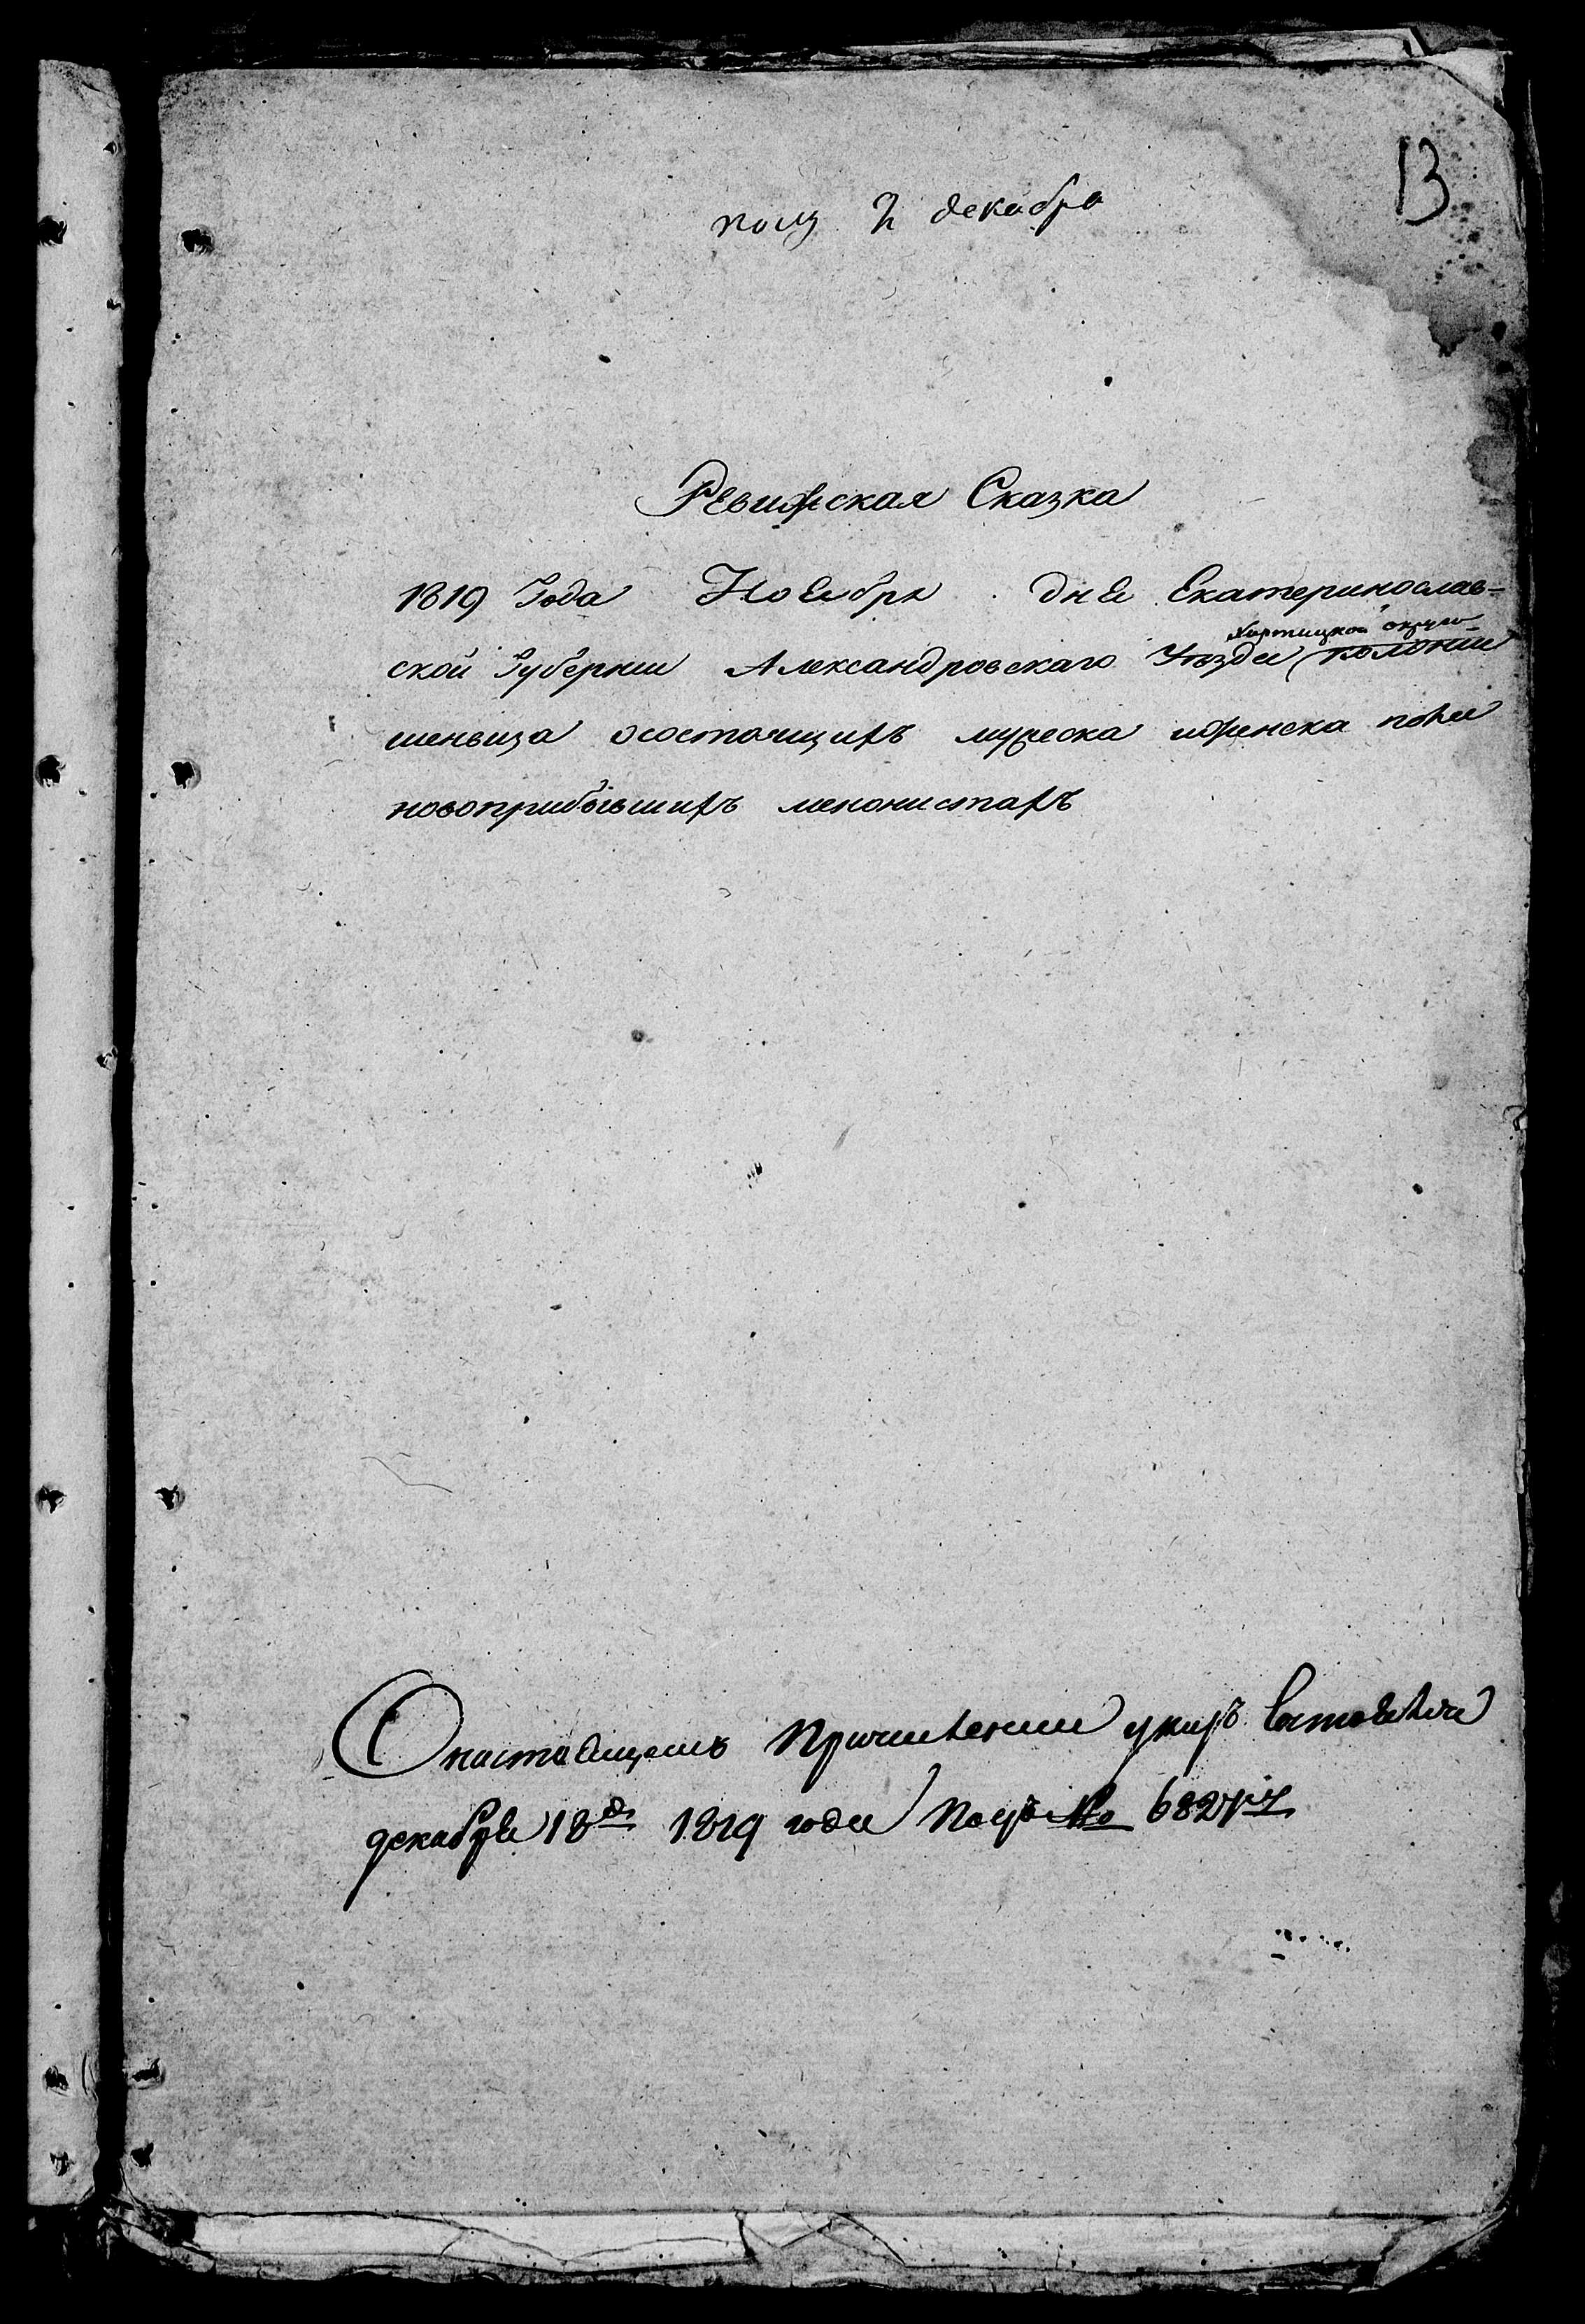 13
пол 2 декабря
Ревижская Сказка
1819 Года Ноября дня Екатеринослав=
ской Губернии Александровскаго Уезда колонии
Хортицкой округи
шенвиза осостоящихъ мужеска иженска пола
новоприбывшихъ менонистахъ
Онастоящемъ Причислении указъ Состоялся
декабря 18д 1819 года Подъ No 6827мъ